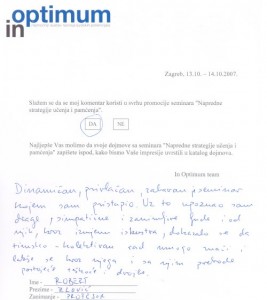 in optimum
Zagreb, 13.10. - 14.10.2007.
Slažem se da se moj komentar koristi u svrhu promocije seminara "Napredne
strategije učenja i pamćenja".
DA NE
Najljepše Vas molimo da svoje dojmove sa seminara "Napredne strategije učenja i
pamćenja" zapišete ispod, kako bismo Vaše impresije uvrstili u katalog dojmova.
In Optimum team
Dinamičan, privlačan, zabavan seminar
kojem sam pristupio. Uz to upoznao sam
drage, simpatične i zanimljive ljude i od
njih, kroz iskustva, da
timsko - rad mnogo znači i
lakše se kroz njega i sa njim
teškoće i dvojbe.
Ime - ROBERT
Prezime -
Zanimanje - PROFESOR